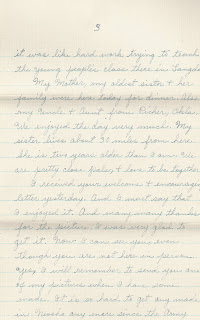 3
it was like hard work trying to teach
the young people's class there in
My Mother, my oldest sister & her
family were here today for dinner. Also
my Uncle & Aunt from Picher, Okla.
We enjoyed the day very much. My
sister lives about 30 miles from here.
She is two years older than I am. We
are pretty close pals, & love to be together.
I received your welcome & encouraging
letter yesterday. And I must say that
I enjoyed it. And many many thanks
for the picture. I was very glad to
get it. Now I can see you even
though you are not here in person.
Yes, I will remember to send you one
of my pictures when I have some
made. It is so hard to get any made
in Neosho any more since the Army